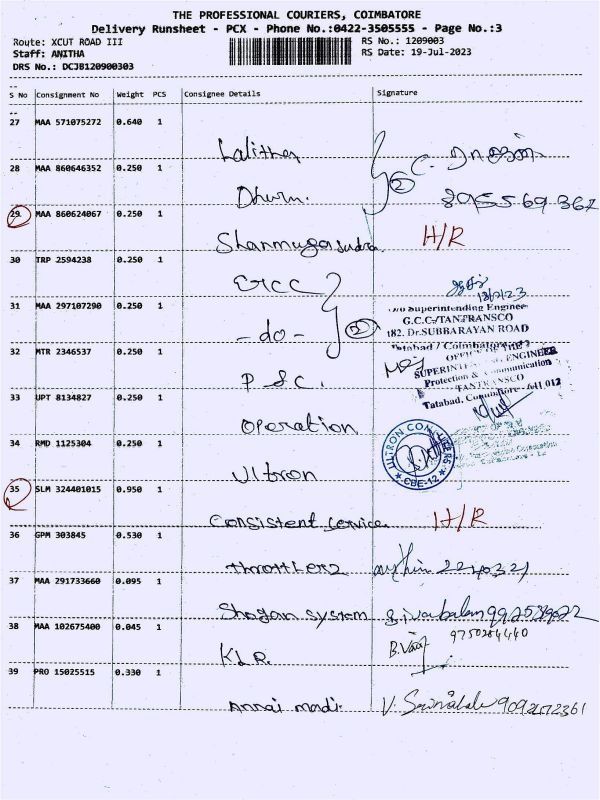 THE PROFESSIONAL COURIERS, COIMBATORE
Delivery Runsheet - PCX - Phone No.:0422-3505555 - Page No.:3
Route: XCUT ROAD III
RS No.: 1209003
Staff: ANITHA
RS Date: 19-Jul-2023
DRS No.: DCJB120900303
S No Consignment No Weight PCS Consignee Details Signature
27 MAA 571075272 0.640 1
Lalitha
C.
28 MAA 860646352 0.250 1
Dhurn. 2
29 MAA 860624067 0.250 1
Shanmugasudra. H/R
30 TRP 2594238 0.250 1
31 MAA 297107290 0.250 1
- do - 2
O/o Superintending Engineer
G.C.C/TANTRANSCO
182, Dr.SUBBARAYAN ROAD
Tatabad / Coimbatore
32 MTR 2346537 0.250 1
P.S.C.
OFFICE OF THE
SUPERINTENDING ENGINEER
Protection & Communication
TANTRANSCO
Tatabad, Coimbatore - 641 012
33 UPT 8134827 0.250 1
Operation
34 RMD 1125304 0.250 1
Ultron
ULTRON COMPUTERS
CBE-12
35 SLM 324401015 0.950 1
Consistent service H/R
36 GPM 303845 0.530 1
37 MAA 291733660 0.095 1
Shogan system
38 MAA 102675400 0.045 1
KLR. 9750284440
39 PRO 15025515 0.330 1
Annai madi. V.